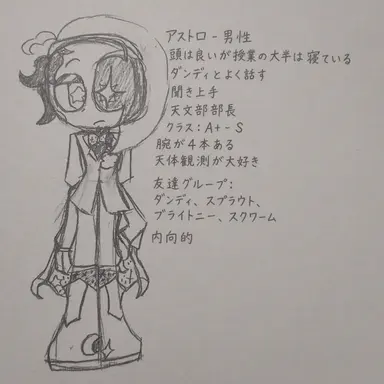 アストロ - 男性
頭は良いが授業の大半は寝ている
ダンディとよく話す
聞き上手
天文部部長
クラス: A+ - S
腕が4本ある
天体観測が大好き
友達グループ:
ダンディ、スプラウト、
ブライトニー、スクワーム
内向的